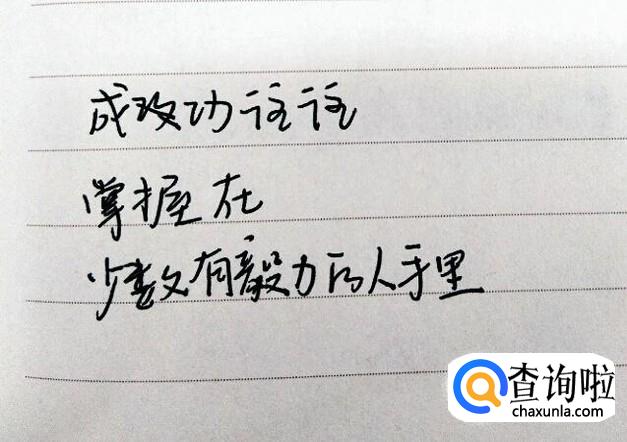 成攻功往往
掌握在
少数有毅力的人手里
查询啦
chaxunla.com